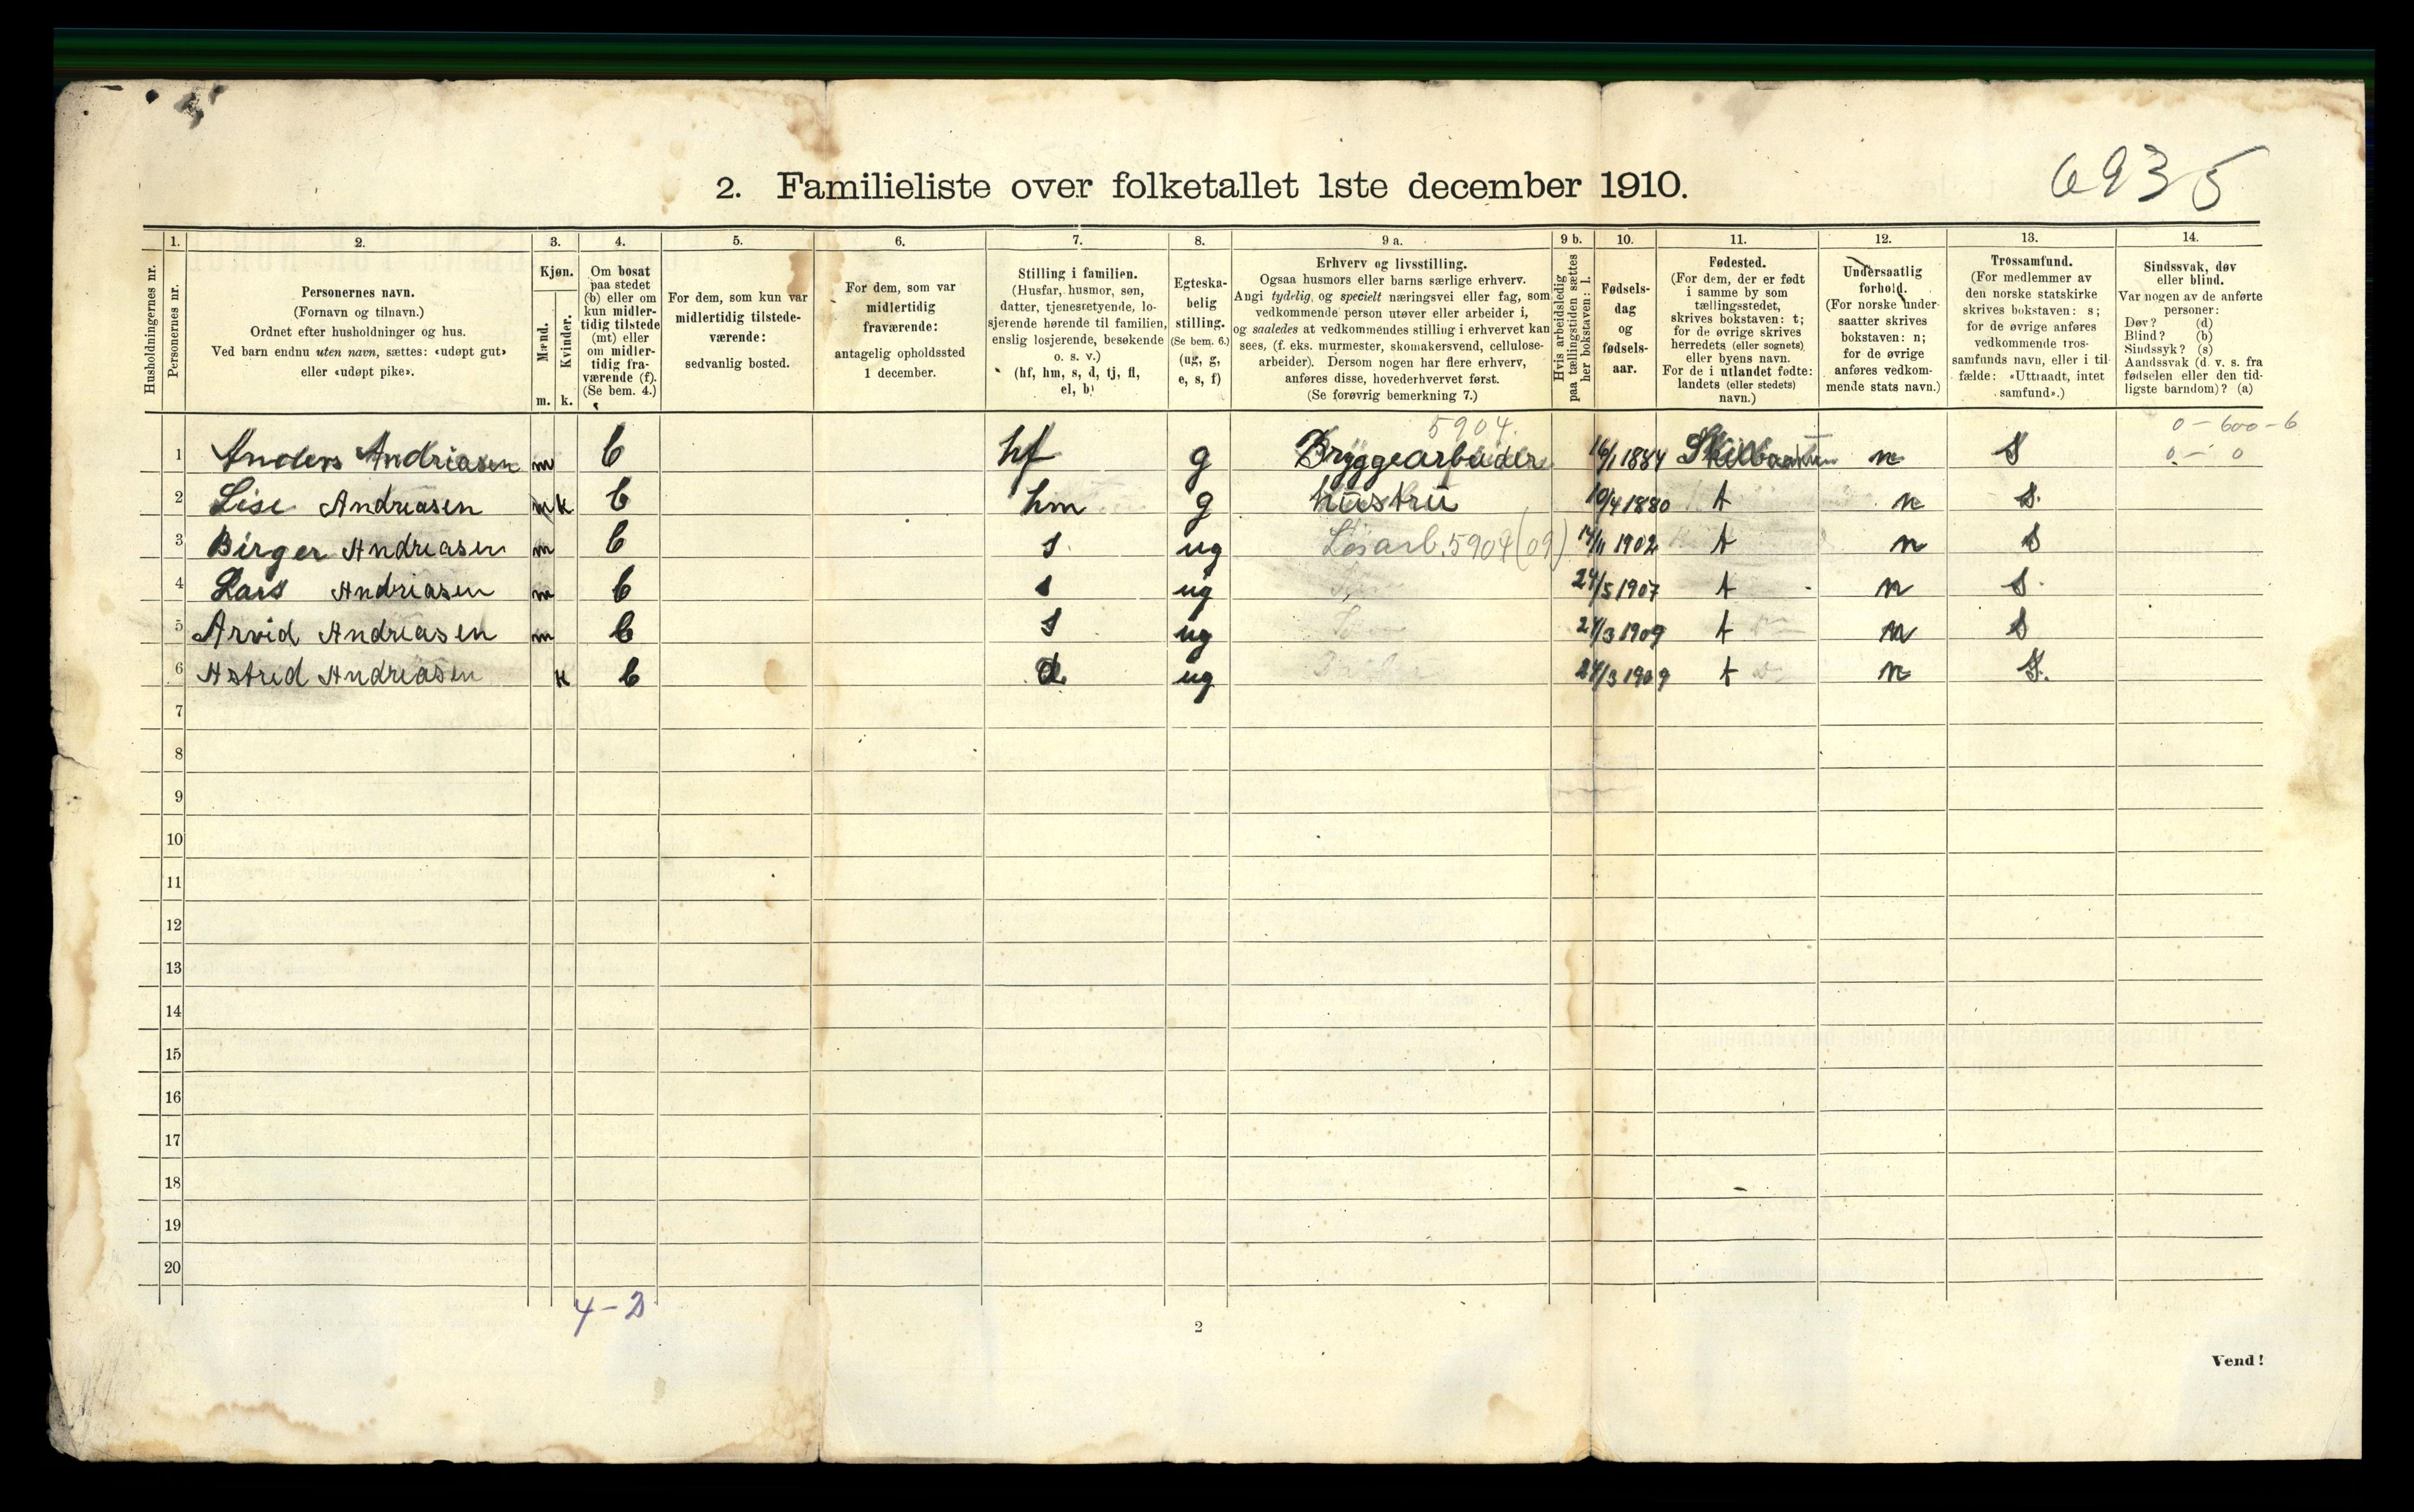 6935
2. Familieliste over folketallet 1ste december 1910.
Husholdningernes nr.
1.
Personernes nr.
2.
Personernes navn.
(Fornavn og tilnavn.)
Ordnet efter husholdninger og hus.
Ved barn endnu uten navn, sættes: «udøpt gut»
eller «udøpt pike».
3.
Kjøn.
Mænd.
Kvinder.
m. k.
4.
Om bosat
paa stedet
(b) eller om
kun midler-
tidig tilstede
(mt) eller
om midler-
tidig fra-
værende (f).
(Se bem. 4.)
5.
For dem, som kun var
midlertidig tilstede-
værende:
sedvanlig bosted.
6.
For dem, som var
midlertidig
fraværende:
antagelig opholdssted
1 december.
7.
Stilling i familien.
(Husfar, husmor, søn,
datter, tjenestetyende, lo-
sjerende hørende til familien,
enslig losjerende, besøkende
o. s. v.)
(hf, hm, s, d, tj, fl,
el, b)
8.
Egteska-
belig
stilling.
(Se bem. 6.)
(ug, g,
e, s, f)
9 a.
Erhverv og livsstilling.
Ogsaa husmors eller barns særlige erhverv.
Angi tydelig og specielt næringsvei eller fag, som
vedkommende person utøver eller arbeider i,
og saaledes at vedkommendes stilling i erhvervet kan
sees, (f. eks. murmester, skomakersvend, cellulose-
arbeider). Dersom nogen har flere erhverv,
anføres disse, hovederhvervet først.
(Se forøvrig bemerkning 7.)
9 b.
Hvis arbeidsledig
paa tællingstiden sættes
her bokstaven: l.
10.
Fødsels-
dag
og
fødsels-
aar.
11.
Fødested.
(For dem, der er født
i samme by som
tællingsstedet,
skrives bokstaven: t;
for de øvrige skrives
herredets (eller sognets)
eller byens navn.
For de i utlandet fødte:
landets (eller stedets)
navn.)
12.
Undersaatlig
forhold.
(For norske under-
saatter skrives
bokstaven: n;
for de øvrige
anføres vedkom-
mende stats navn.)
13.
Trossamfund.
(For medlemmer av
den norske statskirke
skrives bokstaven: s;
for de øvrige anføres
vedkommende tros-
samfunds navn, eller i til-
fælde: «Uttraadt, intet
samfund».)
14.
Sindssvak, døv
eller blind.
Var nogen av de anførte
personer:
Døv? (d)
Blind? (b)
Sindssyk? (s)
Aandssvak (d. v. s. fra
fødselen eller den tid-
ligste barndom)? (a)
5904. 0 - 600 - 6
1 Anders Andriasen m b hf g Bryggearbeider 16/1 1884 n S 0 - 0
2 Lise Andreasen k b hm g hustru 10/4 1880 t n S.
3 Birger Andreasen m b s. ug Løsarb. 5904 (09) 14/11 1902 t n S
4 Lars Andriasen m b s ug 24/5 1907 t n S.
5 Arvid Andreasen m b s ug 24/3 1909 t n S
6 Astrid Andreasen k b d. ug 24/3 1909 t n S.
7
8
9
10
11
12
13
14
15
16
17
18
19
20
4 - 2
2
Vend!